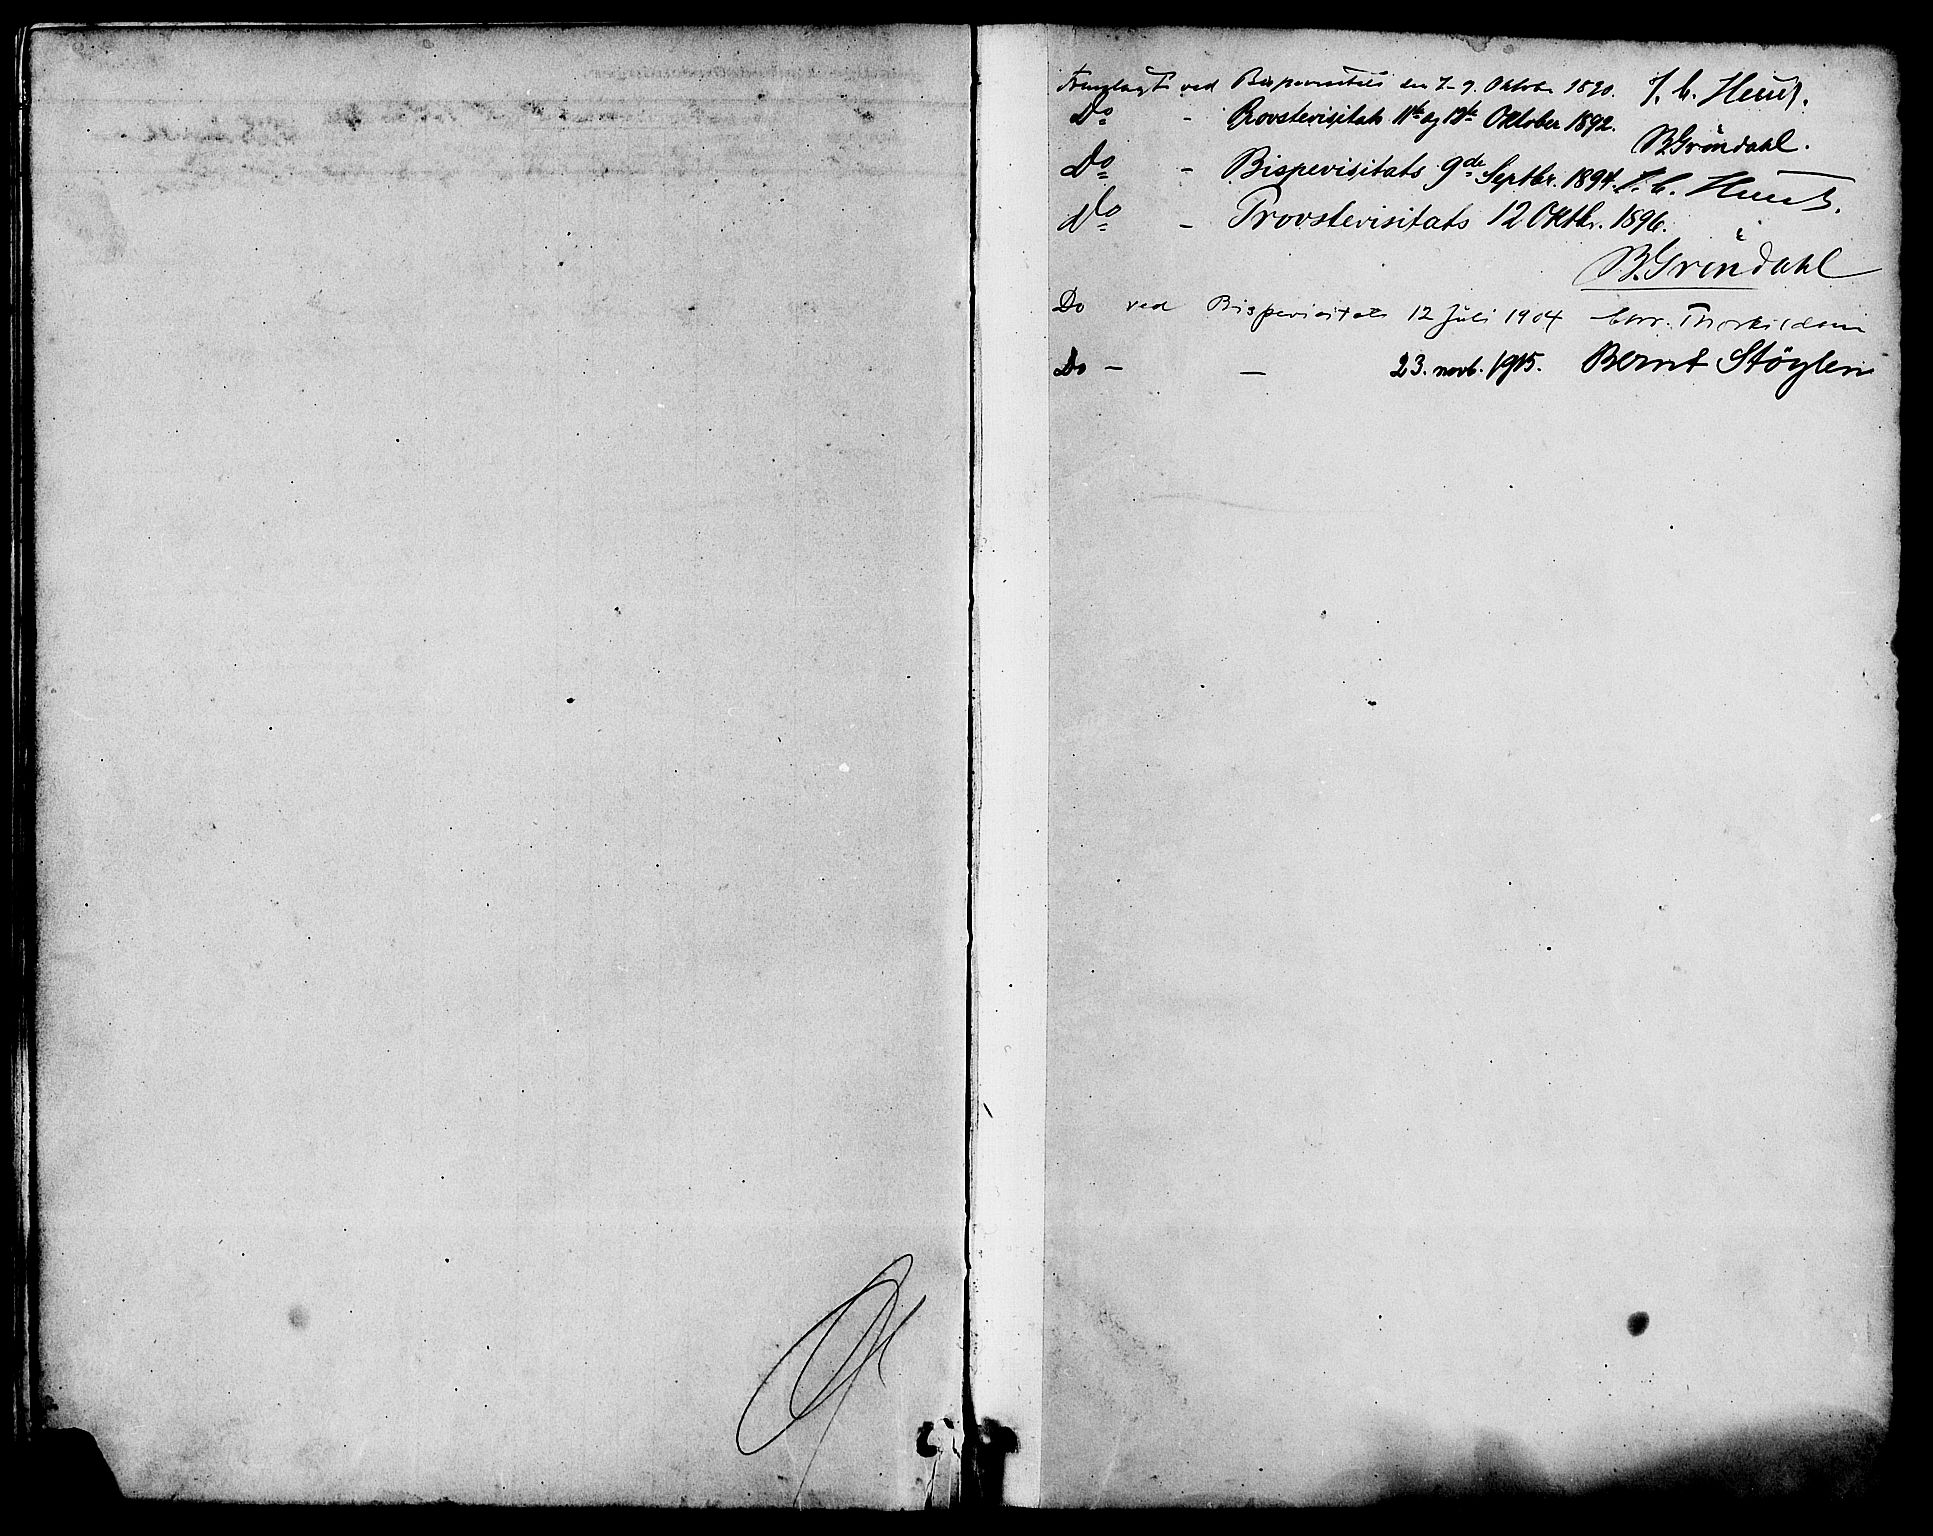 Fremlagt ved Bispevisitats den 7-9. Oktober 1890. J. C. Heuch.
Do - Provstevisitats 11te og 12te Oktober 1892.
B Gröndahl.
Do - Bispevisitats 9de Septbr. 1894. J. C. Heuch.
Do - Provstevisitats 12 Oktbr. 1896.
B. Gröndahl
Do ved Bispevisitats 12 Juli 1904 Chr. Thorkildsen
Do - - 23. novb. 1915. Bernt Støylen